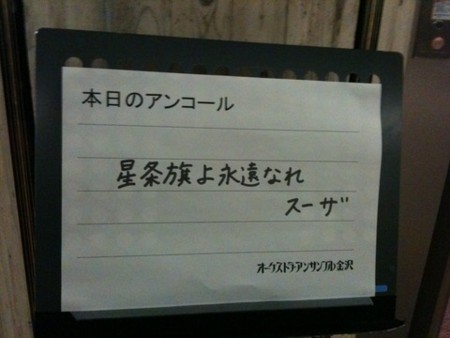 本日のアンコール
星条旗よ永遠なれ
スーザ
オーケストラ・アンサンブル金沢